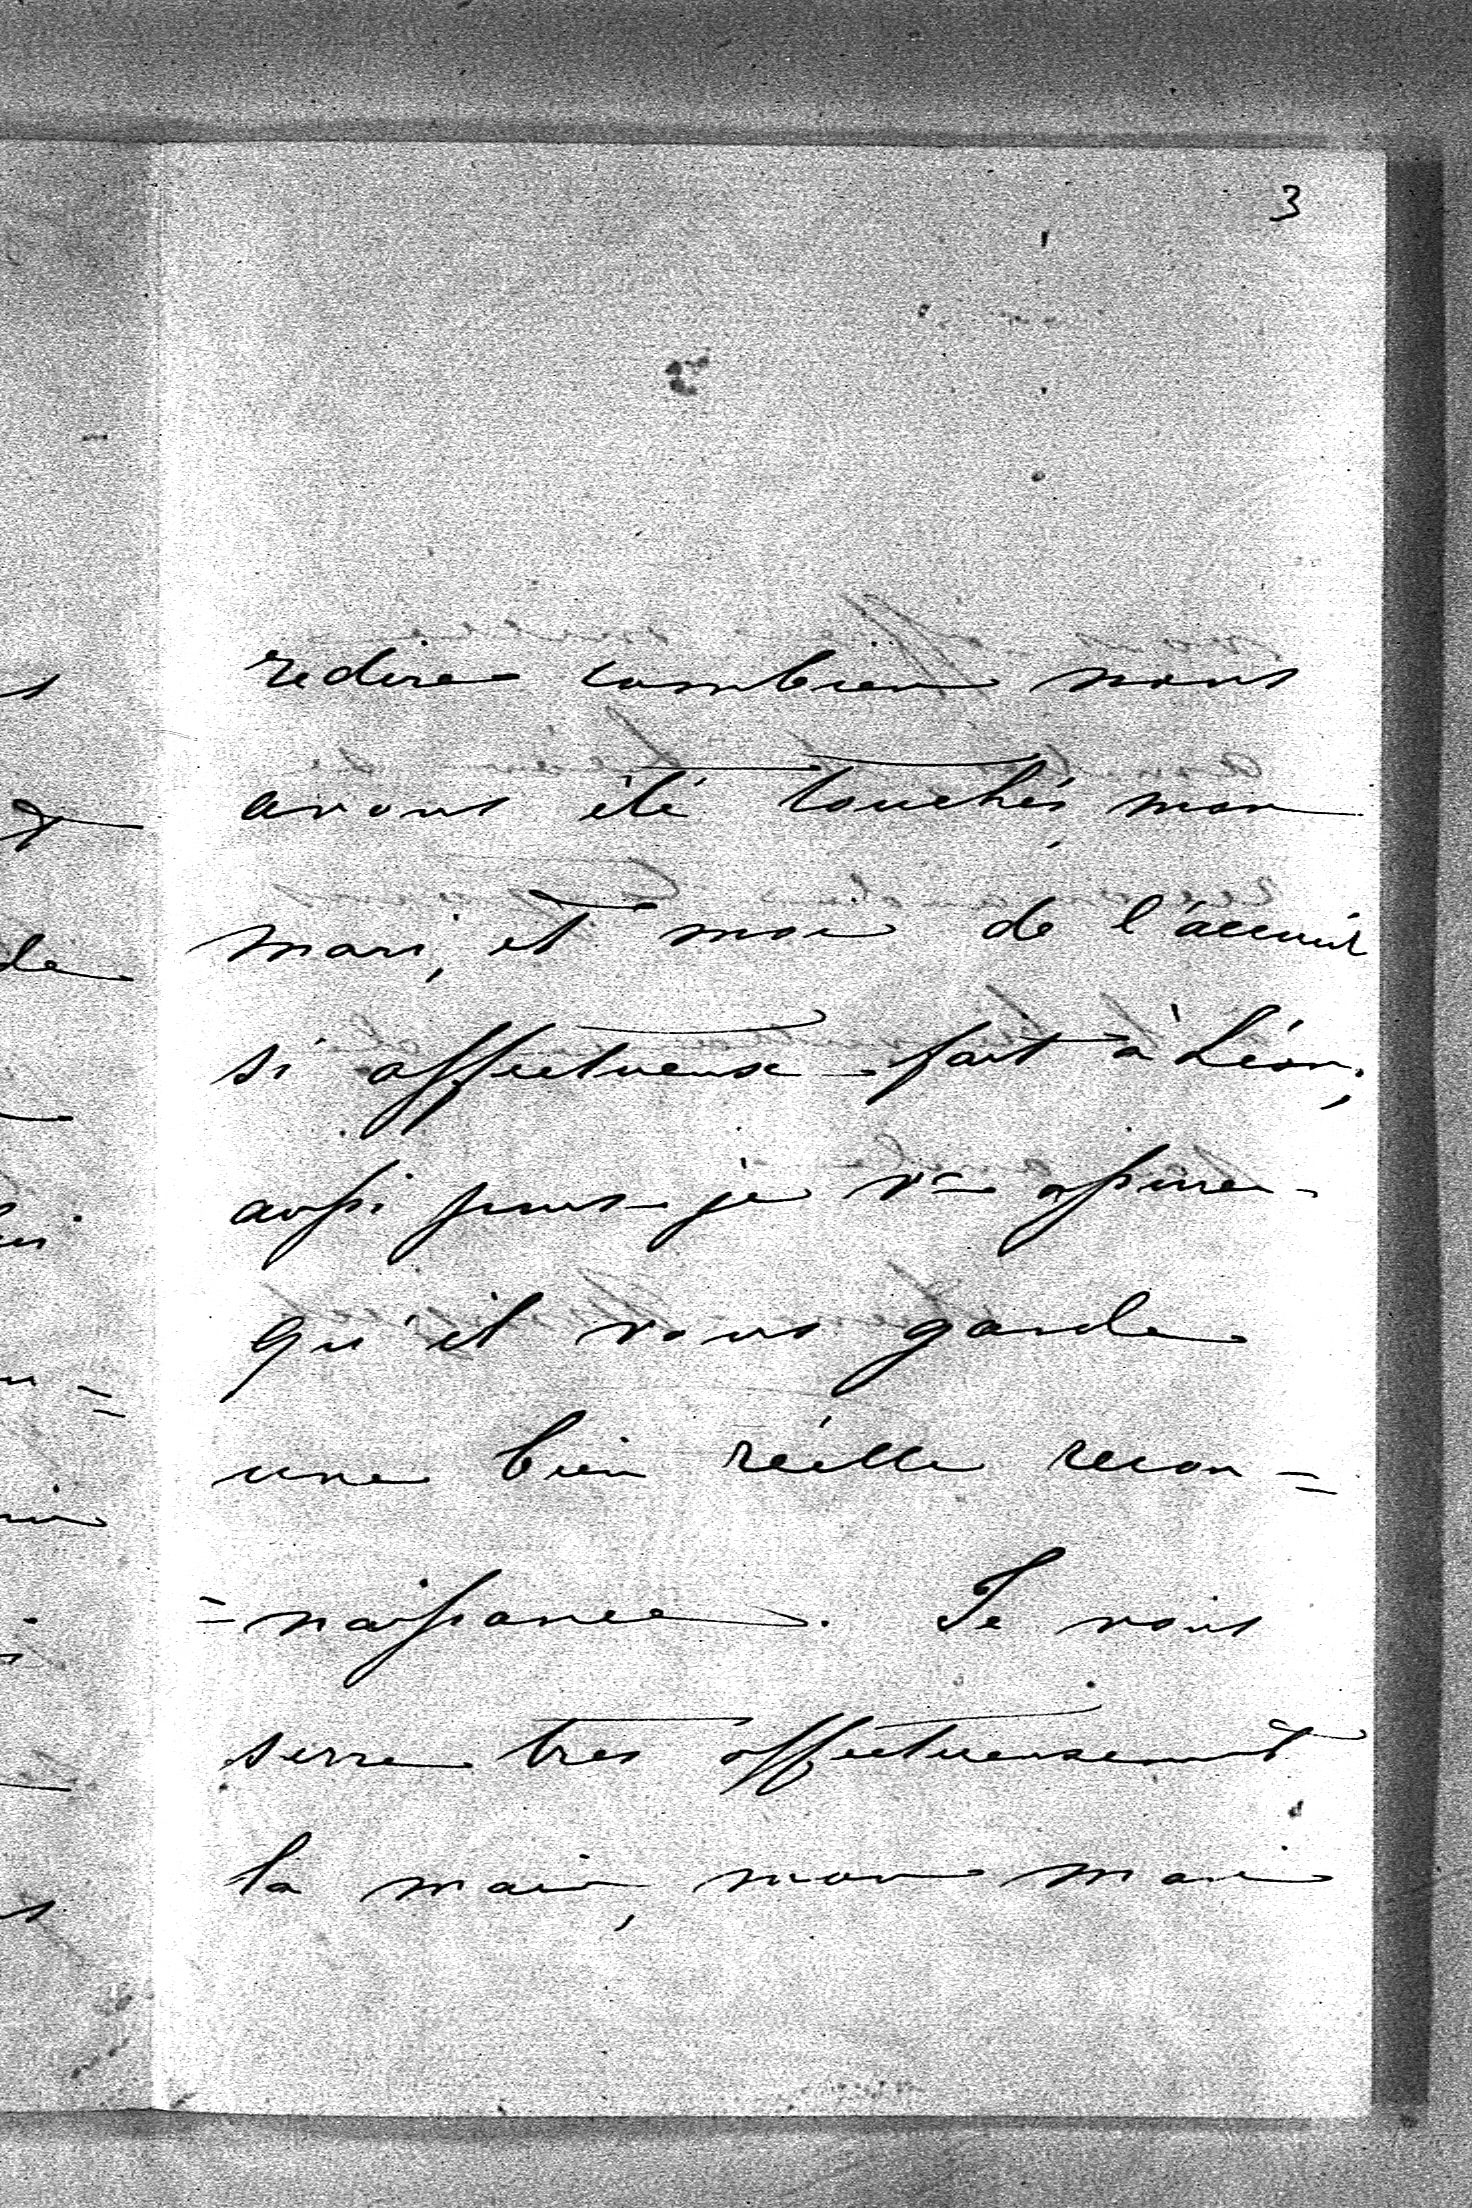 3
redire combien nous
avons été touchés, mon
mari, et moi de l'accueil
si affectueux fait à Léon,
aussi puis-je vs assurer
qu'il vous garde
une bien réelle recon=
=naissance. Je vous
serre très affectueusement
la main, mon mari